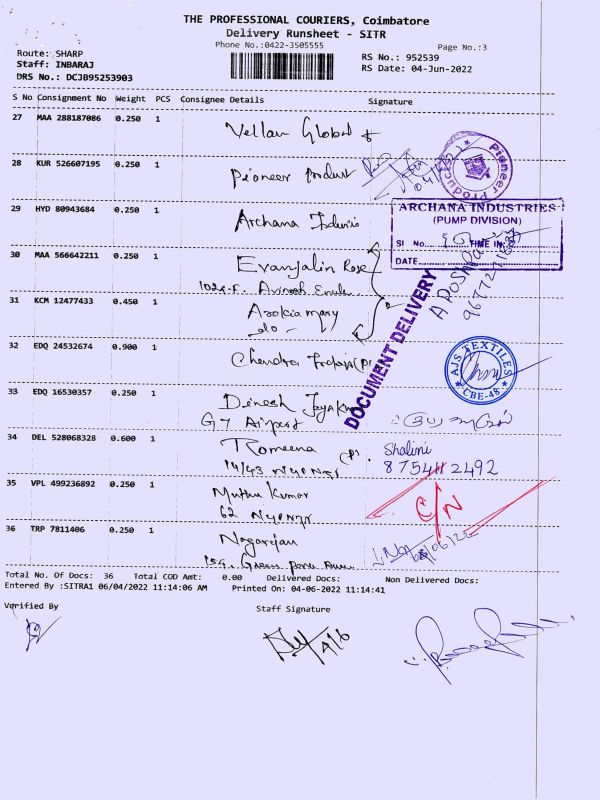 THE PROFESSIONAL COURIERS, Coimbatore
Delivery Runsheet - SITR
Phone No.:0422-3505555
Page No.:3
Route: SHARP
Staff: INBARAJ
DRS No.: DCJB95253903
RS No.: 952539
RS Date: 04-Jun-2022
S No Consignment No Weight PCS Consignee Details Signature
27 MAA 288187086 0.250 1 Vellan Global
28 KUR 526607195 0.250 1 Pioneer Product
Pioneer Products
29 HYD 80943684 0.250 1 Archana
ARCHANA INDUSTRIES
(PUMP DIVISION)
Sl No. TIME IN:
DATE
30 MAA 566642211 0.250 1 Evanjalin Rose
102
31 KCM 12477433 0.450 1 Arokia mary
do -
DOCUMENT DELIVERY
32 EDQ 24532674 0.900 1 Chendra
AJS TEXTILES
CBE-48
33 EDQ 16530357 0.250 1 Dinesh
G7 Airport
34 DEL 528068328 0.600 1 Romeena (P).
14/43
Shalini
8754112492
35 VPL 499236892 0.250 1 Muthu Kumar
62
C/N
36 TRP 7811406 0.250 1 Nagarajan
159. Green Park Aven
Total No. Of Docs: 36 Total COD Amt: 0.00 Delivered Docs: Non Delivered Docs:
Entered By :SITRA1 06/04/2022 11:14:06 AM Printed On: 04-06-2022 11:14:41
Verified By Staff Signature